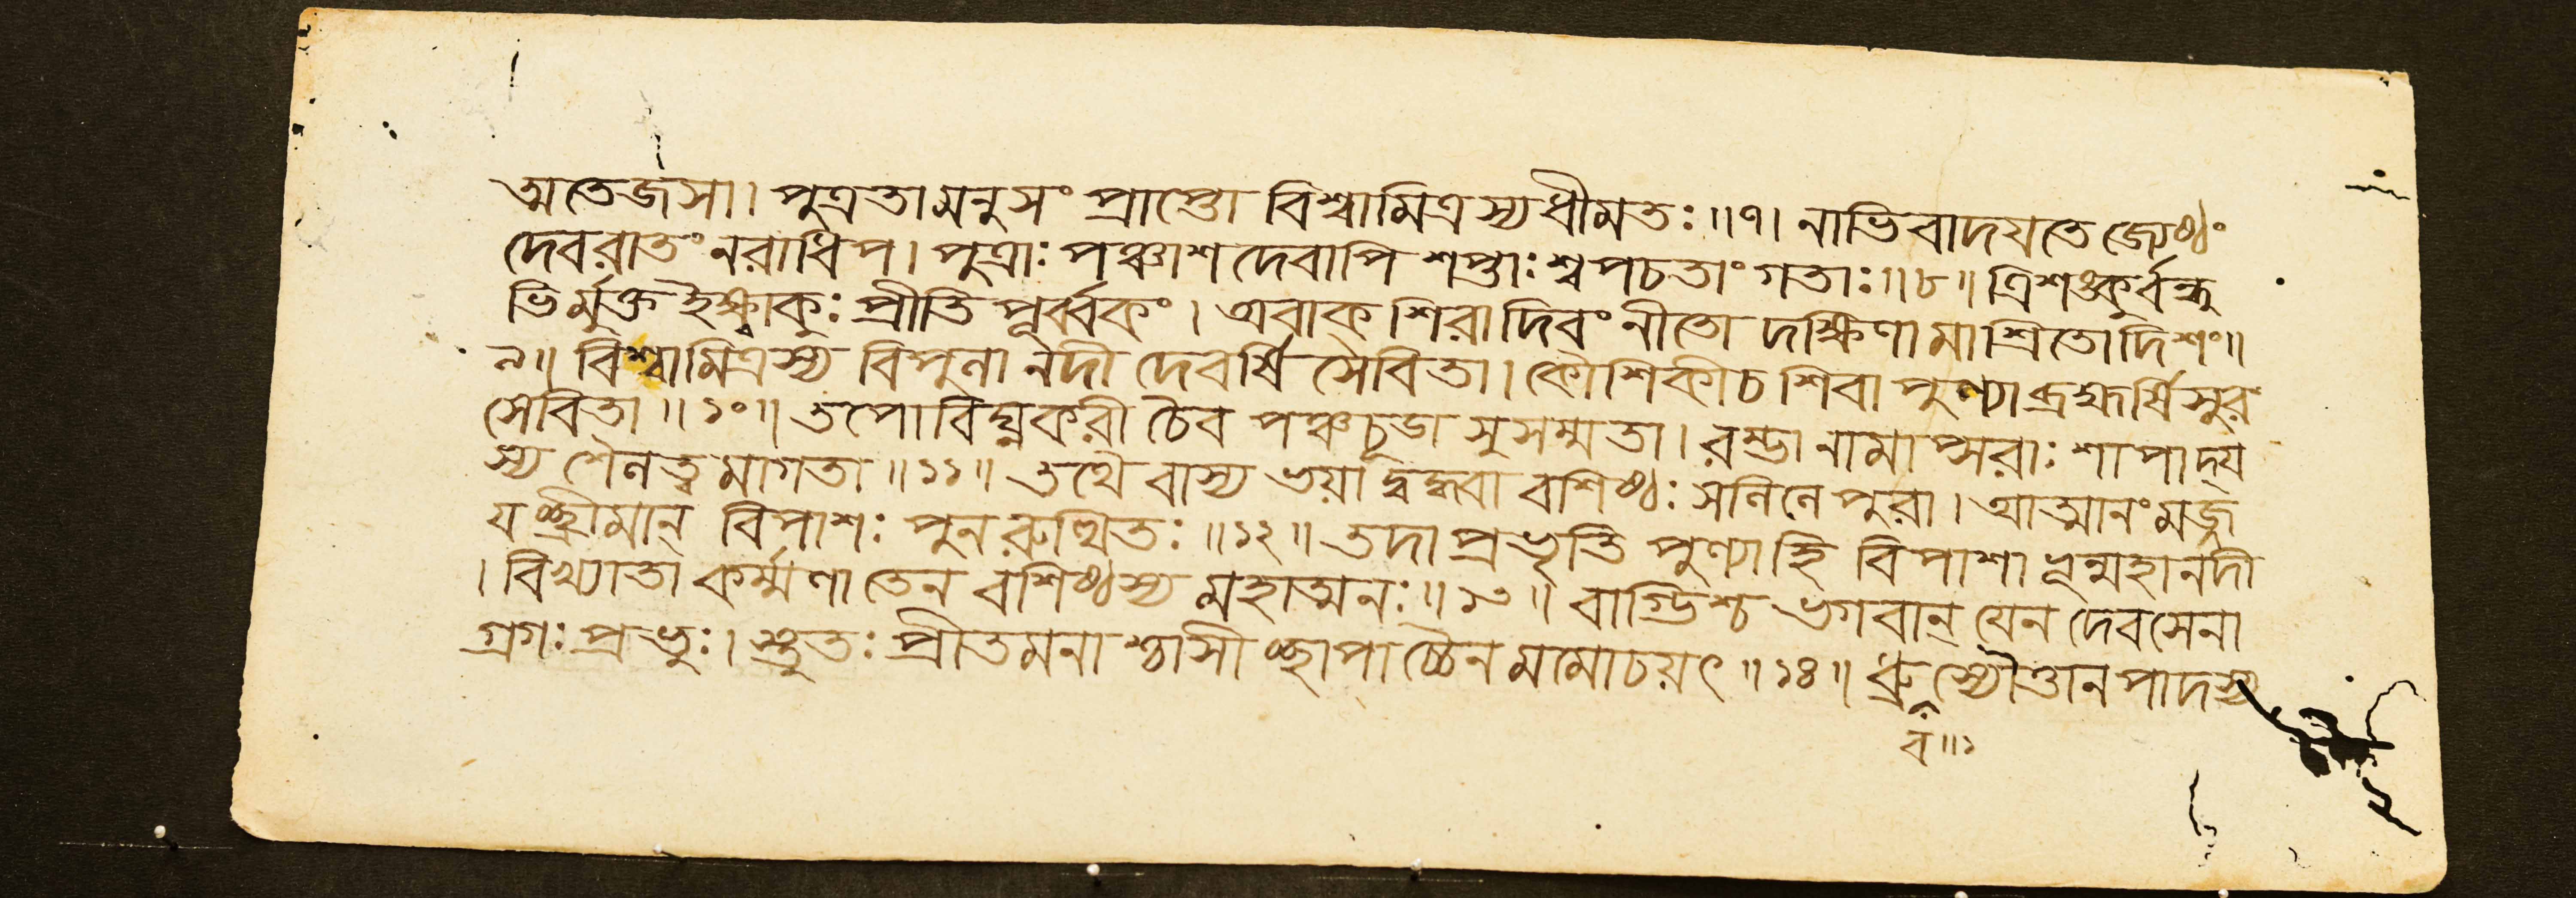 ত্মতেজসা। পুত্রতামনুসংপ্রাপ্তো বিশ্বামিত্রস্যধীমতঃ॥৭। নাভিবাদযতে জ্যেষ্ঠং
দেবরাতংনরাধিপ। পুত্রাঃ পঞ্চাশদেবাপি শপ্তাঃ শ্বপচতাং গতাঃ॥৮॥ ত্রিশঙ্কুর্বন্ধু
ভির্মুক্ত ইক্ষ্বাকুঃ প্রীতিপূর্ব্বকং। অবাক্ শিরাদিবং নীতো দক্ষিণামাশ্রিতোদিশং॥
৯॥ বিশ্বামিত্রস্য বিপুলা নদী দেবর্ষি সেবিতা। কৌশিকীচ শিবা পুণ্যা ব্রহ্মর্ষিসুর
সেবিতা॥১০॥ তপোবিঘ্নকরী চৈব পঞ্চচূডা সুসম্মতা। রম্ভানামাপ্সরাঃ শাপাদ্য
স্য শৈলত্বমাগতা॥১১॥ তথৈবাস্য ভয়াদ্বদ্ধ্বা বশিষ্ঠঃ সলিলে পুরা। আত্মানংমজ্জ
যঞ্ছ্রীমান্ বিপাশঃ পুনরুত্থিতঃ॥১২॥ তদাপ্রভৃতি পুণ্যাহি বিপাশা ভূন্মহানদী
। বিখ্যাতা কর্ম্মণা তেন বশিষ্ঠস্য মহাত্মনঃ॥১৩॥ বাগ্ভিশ্চ ভগবান্ যেন দেবসেনা
গ্রগঃ প্রভুঃ। স্তুতঃ প্রীতমনাশ্চাসীচ্ছাপাচ্চৈনমমোচয়ৎ॥১৪॥ ধ্রুস্যৌত্তানপাদস্য
ব॥১